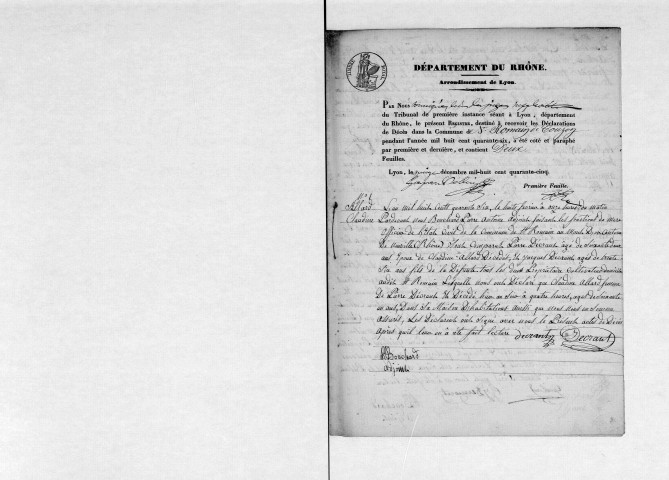 DÉPARTEMENT DU RHÔNE.
Arrondissement de Lyon.
PAR NOUS
du Tribunal de première instance séant à Lyon, département
du Rhône, le présent REGISTRE, destiné à recevoir les Déclarations
de Décès dans la Commune de St Romain de Couzon
pendant l'année mil huit cent quarante-six, a été coté et paraphé
par première et dernière, et contient Deux
Feuilles.
Lyon, le décembre mil-huit cent quarante-cinq.
Première Feuille.
No 1
Allard
Claudine
L'an mil huit cent quarante six, le huit à onze heures du matin
Pardevant nous Bouchard Pierre Antoine adjoint faisant les fonctions de
officier de l'état Civil de la Commune de St Romain au mont D'or Canton
De Neuville (Rhône) sont Comparut Pierre Décrant âgé de
ans Epoux de Claudine Allard Décédée, et Jacques Decrant agé de trente
Six ans fils de la Défunte tous les deux Propriétaire Cultivateur
audit St Romain Lesquels nous ont Déclaré que Claudine Allard femme
De Pierre Décrant est Décédé hier au soir à quatre heures, agé de
ans, Dans Sa Maison D'habitation ainsi que nous nous en Sommes
assurés, Les Déclarants ont Signé avec nous le Présent acte de Décès
Après qu'il leur en a été fait lecture
decrant Decrant
Bouchard
adjoint